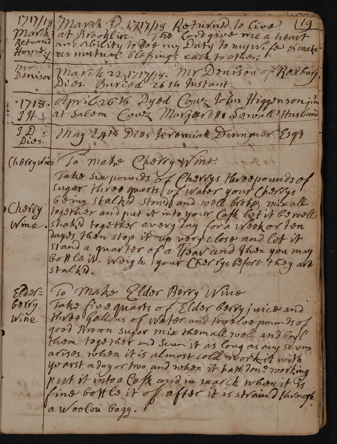 1717/18 March 3d 1717/18 Returnd to live
March at Brooklin. The Lord give me a heart
Returnd and ability to doe my Duty to my wife & make
Home us mutual blessings each to other.
Mr March 22. 1717/18. Mr Denison of Roxbury
Denison Dies Buried 26th Instant.
1718. April 26th Dyed Couz John Higgenson jun
J H at Salem Couz Sewalls Husband
J D May 24th Dies Jeremiah Dummer Esqr
Dies
Cherry wine To make Cherry Wine.
Take six pounds of Cherrys three pounds of
sugar three quarts of water your Cherrys
being stalk'd stoned and well broke, mix all
Cherry together and put it into your Cask let it be well
Wine. shak'd together every day for a week or ten
dayes then stop it up very close and let it
stand a quarter of a Year and then you may
bottle it. Weigh your Cherrys before they are
stalk'd.
Elder- To Make Elder Berry Wine
berry Take five quarts of Elder berry juice and
Wine three Gallons of Water and twelve pounds of
good Brown sugar mix them all well and boyl
them together and scum it as long as any scum
arises when it is almost cold work it with
yeast a day or two and when it hath done working
put it into a Cask and in march when it is
fine bottle it off after it is straind through
a Woolen bagg.